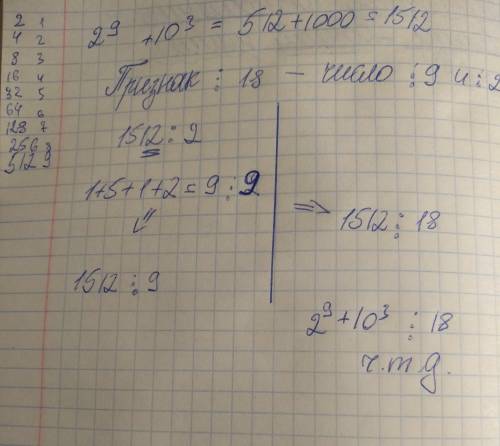 2 1
4 2
8 3
16 4
32 5
64 6
128 7
256 8
512 9
2⁹ + 10³ = 512 + 1000 = 1512
Признак ⋮ 18 — число ⋮ 9 и ⋮ 2
1512 ⋮ 2
1+5+1+2 = 9 ⋮ 9
⇓
1512 ⋮ 9
⇒ 1512 ⋮ 18
2⁹ + 10³ ⋮ 18
ч.т.д.